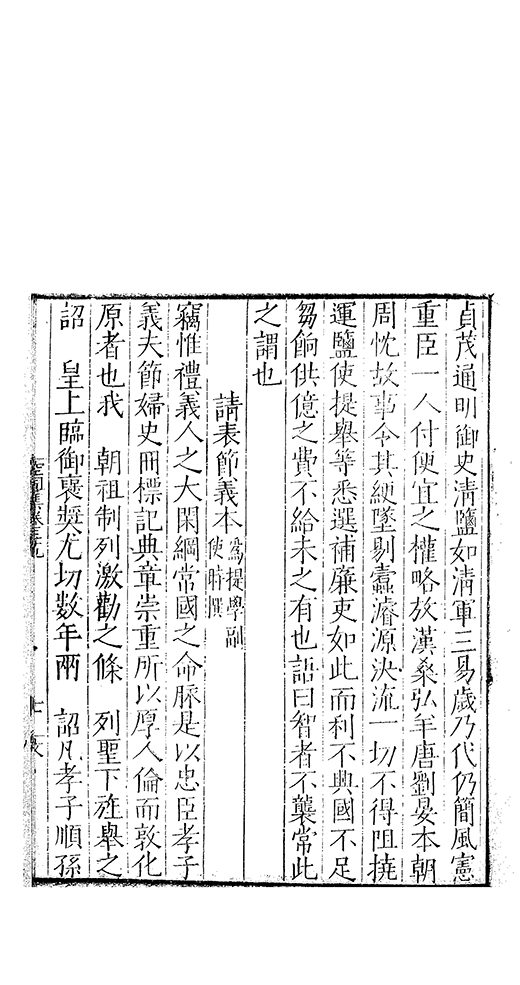 貞茂通明御史清鹽如清軍三易歲乃代仍簡風憲
重臣一人付便宜之權略放漢桑弘羊唐劉晏本朝
周忱故事令其綆墜剔蠹濬源決流一切不得阻撓
運鹽使提舉等悉選補廉吏如此而利不興國不足
芻餉供億之費不給未之有也語曰智者不襲常此
之謂也
請表節義本 為提學副使時撰
竊惟禮義人之大閑綱常國之命脉是以忠臣孝子
義夫節婦史冊標記典章崇重所以厚人倫而敦化
原者也我 朝祖制列激勸之條 列聖下旌舉之
詔 皇上臨御褒獎尤切数年兩 詔凡孝子順孫